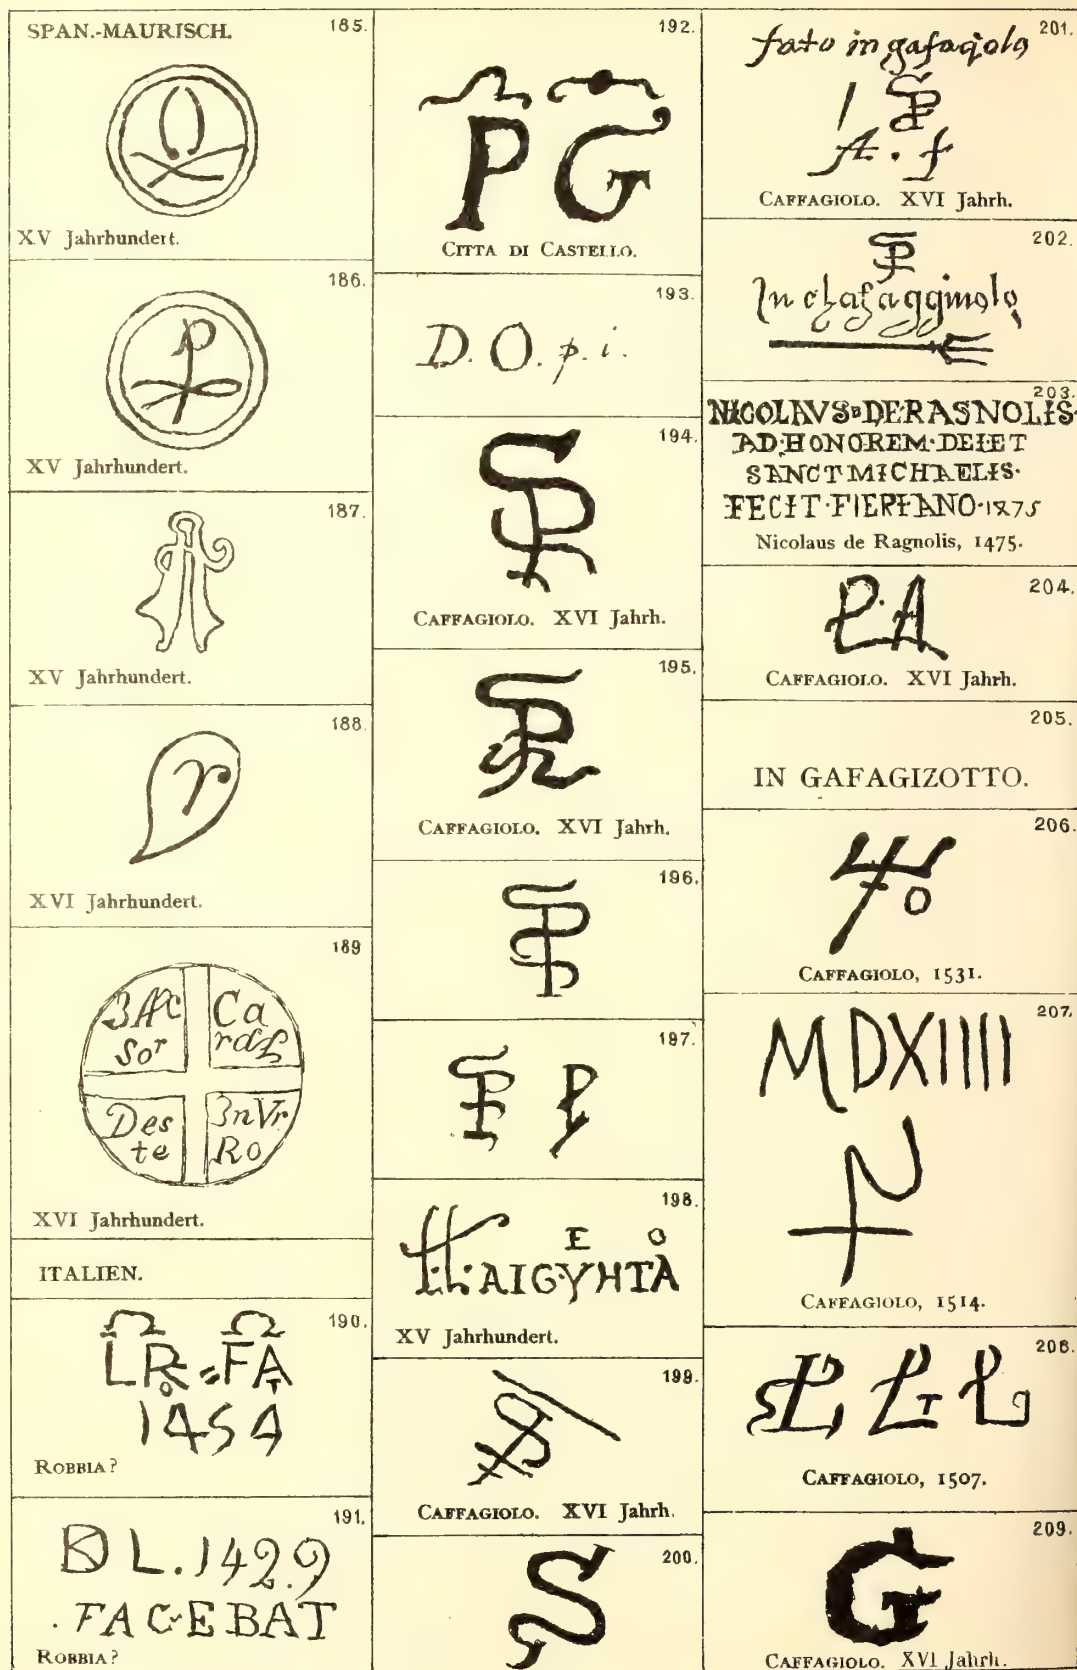 SPAN.-MAURISCH.
185.
XV Jahrhundert.
186.
P
XV Jahrhundert.
187.
XV Jahrhundert.
188.
r
XVI Jahrhundert.
189
Ca
Sor
Des
te
3nVr
Ro
XVI Jahrhundert.
ITALIEN.
190.
1454
ROBBIA?
191.
L. 1429
FACEBAT
ROBBIA?
192.
P G
CITTA DI CASTELLO.
193.
D. O. p. i.
194.
SP
CAFFAGIOLO. XVI Jahrh.
195.
CAFFAGIOLO. XVI Jahrh.
196.
SP
197.
SP
198.
E O
AIGYHTA
XV Jahrhundert.
199.
CAFFAGIOLO. XVI Jahrh.
200.
S
201.
fato in gafagiolo
SP
A. f
CAFFAGIOLO. XVI Jahrh.
202.
SP
In chafaggiuolo
203.
NICOLAVS DE RASNOLIS·
AD·HONOREM·DEIET
SANCTMICHAELIS·
FECIT·FIERIANO·1475
Nicolaus de Ragnolis, 1475.
204.
CAFFAGIOLO. XVI Jahrh.
205.
IN GAFAGIZOTTO.
206.
CAFFAGIOLO, 1531.
207.
MDXIIII
CAFFAGIOLO, 1514.
208.
CAFFAGIOLO, 1507.
209.
G
CAFFAGIOLO. XVI Jahrh.